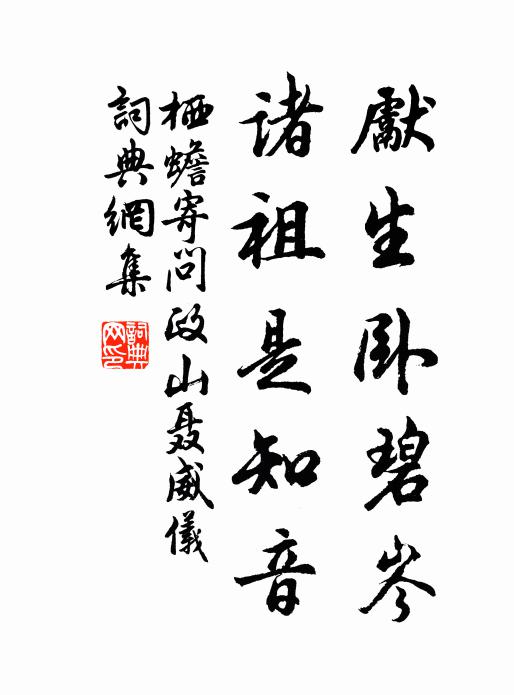 獻生卧碧岑
諸祖是知音
栖蟾寄問政山聂威儀
詞典網集
詞典
网印